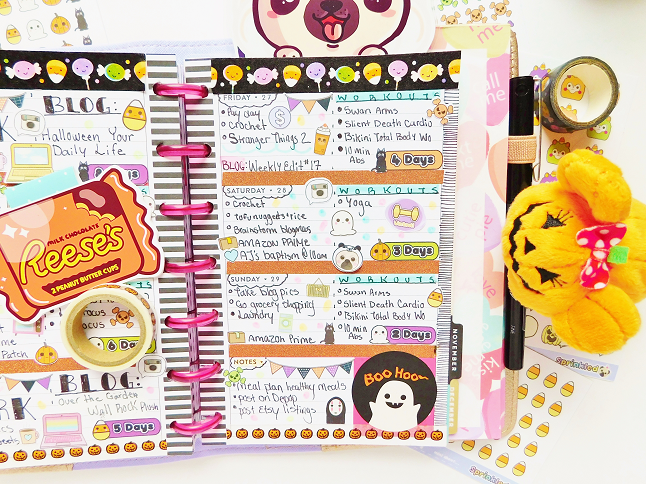 BLOG:
Halloween Your
Daily Life
MILK CHOCOLATE
Reese's
2 PEANUT BUTTER CUPS
Focus
6 Da
Patch
BLOG:
over the Garden
Wall Rock Plush
5 Days
FRIDAY • 27
• Pay day
• Crochet
• Stranger Things 2
BLOG: Weekly Edit #17
WORKOUTS
• Swan Arms
• Slient Death Cardio
• Bikini Total Body Wo
• 10 min
Abs
4 Days
SATURDAY • 28
• Crochet
• Tofu nuggets + rice
• Brainstorm blogmas
AMAZON PRIME
AJ's baptism @ 10am
WORKOUTS
• Yoga
3 Days
SUNDAY • 29
• Take blog pics
• Go grocery shopping
• Laundry
Amazon Prime
WORKOUTS
• Swan Arms
• Slient Death Cardio
• Bikini Total Body Wo
• 10 min
Abs
2 Days
NOTES
• Meal plan healthy meals
• post on Depop
• post Etsy listings
BOO HOO~
NOVEMBER
DECEMBER
sprinkled